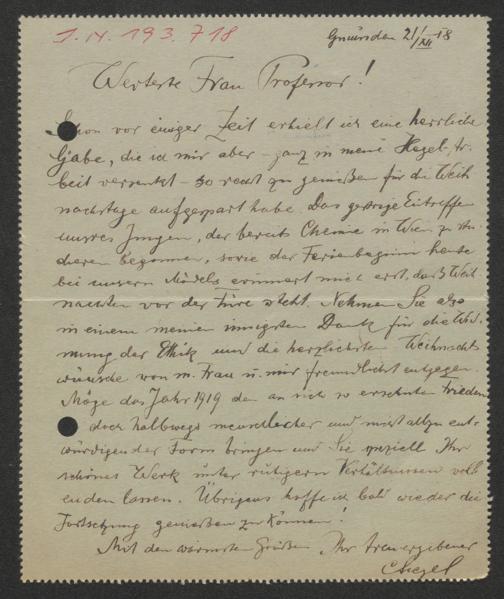 I.N. 193.718
Gmünden 21/XII 18
Werteste Frau Professor!
Schon vor einiger Zeit erhielt ich eine herrliche
Gabe, die ich mir aber – ganz in meine Hegel-Ar-
beit versenkt – so recht zu genießen für die Weih
nachstage aufgespart habe. Das gestrige Eintreffen
unsres Jungen, der bereits Chemie in Wien zu stu-
dieren begonnen, sowie der Ferienbeginn heute
bei unsern Mädels erinnert mich erst, daß Weih
nachten vor der Türe steht. Nehmen Sie also
in einem meinen innigsten Dank für die Wid-
mung der Ethik und die herzlichsten Weihnachts
wünsche von m. Frau u. mir freundlichst entgegen.
Möge das Jahr 1919 den an sich so ersehnten Frieden
doch halbwegs menschlicher und nicht allzu ent-
würdigender Form bringen und Sie speziell Ihr
schönes Werk unter ruhigern Verhältnissen voll
enden lassen. Übrigens hoffe ich bald wieder die
Fortsetzung genießen zu können!
Mit den wärmsten Grüßen Ihr treuergebener
CSiegel